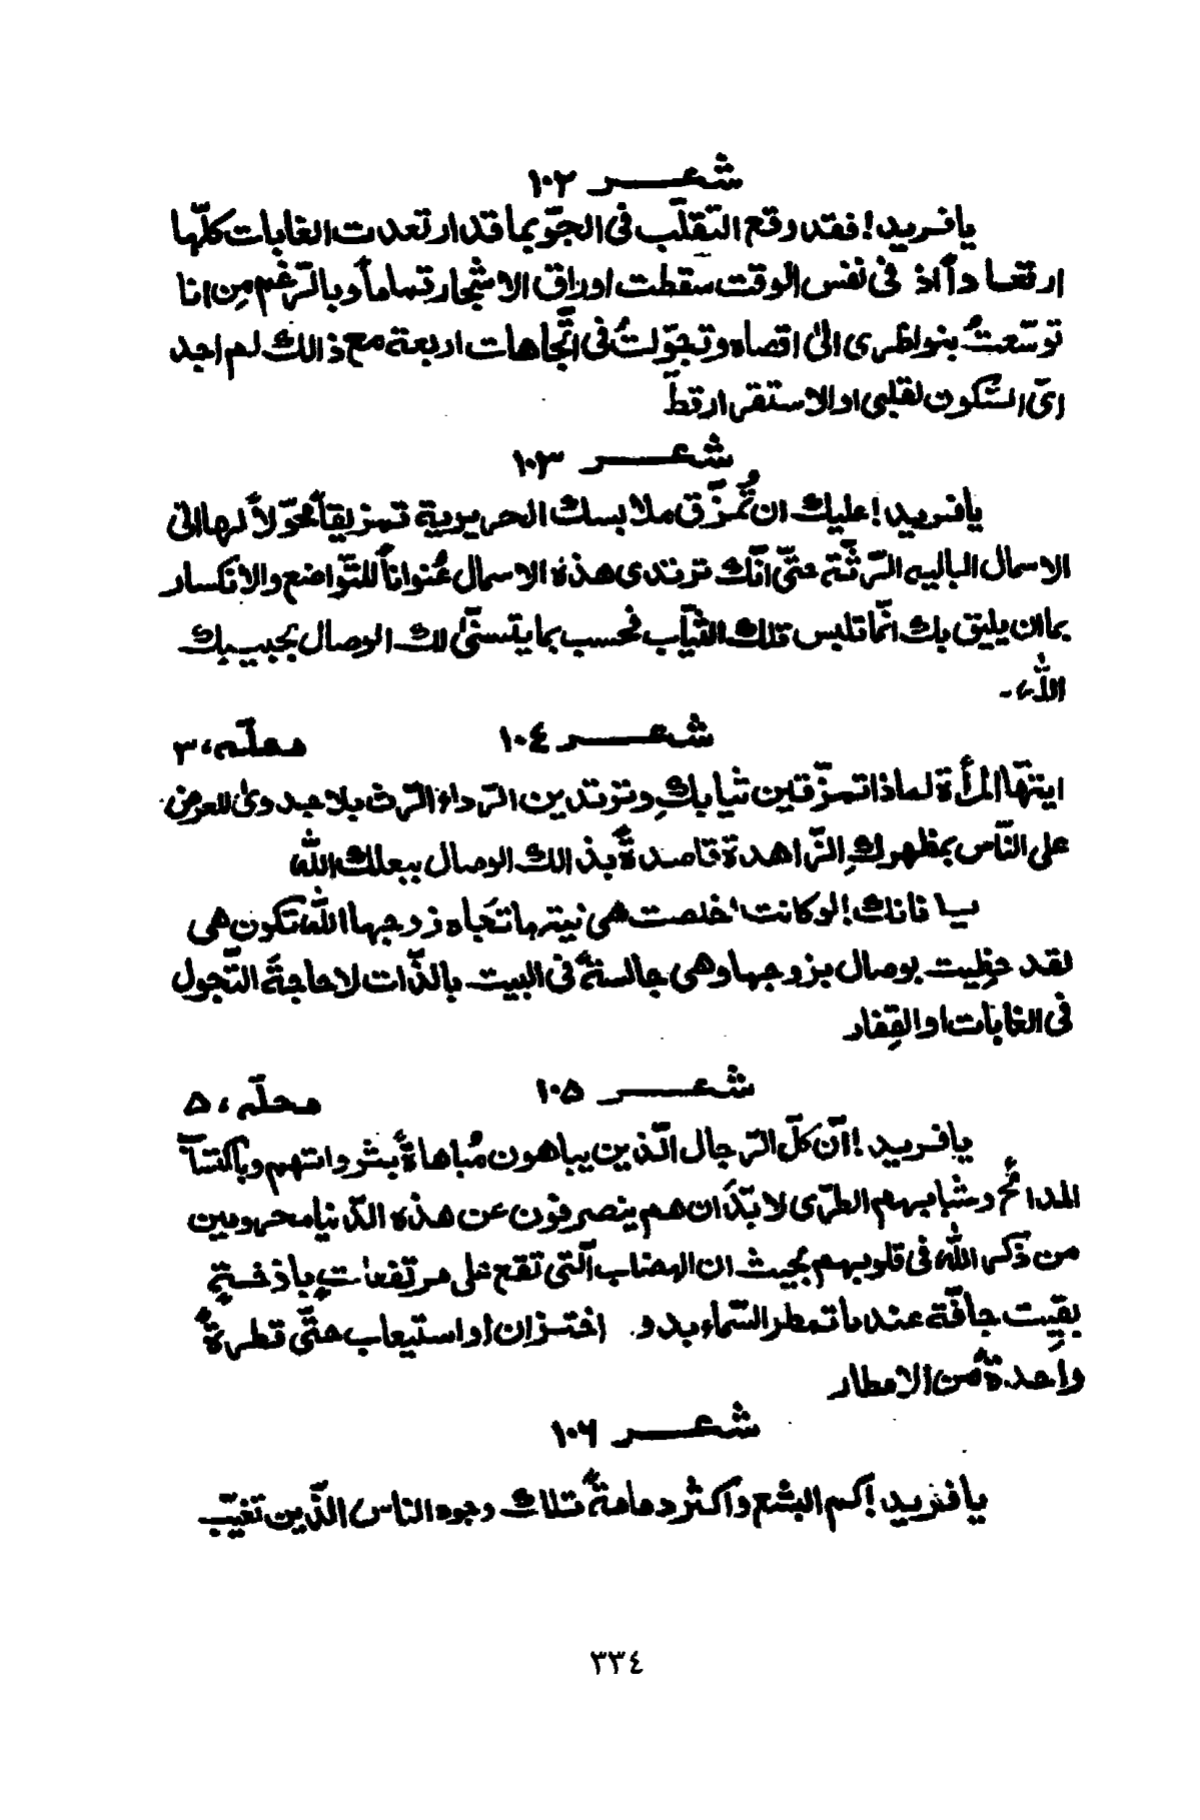 شعر ١٠٢
يا فريد! فقد وقع التقلّب في الجوّ بما قد ارتعدت الغابات كلّها
ارتعاداً اذ في نفس الوقت سقطت اوراق الاشجار تماماً وبالرّغم مِن انا
توسّعتُ بنواظرى الىٰ اقصاه وتجوّلتُ في اتّجاهات اربعة مع ذالك لم اجد
اىّ السّكون لقلبى او الاستقرار قطّ
شعر ١٠٣
يا فريد! عليك ان تُمزّق ملابسك الحريرية تمزيقاً محوّلاً لها الىٰ
الاسمال الباليه الرّثّة حتّىٰ انّك ترتدى هذه الاسمال عُنواناً للتّواضع والانكسار
بما ان يليق بك انّما تلبس تلك الثّياب فحسب بما يتسنّىٰ لك الوصال بحبيبك
اللّٰه۔
شعر ١٠٤ محلّه، ٣
ايتهّا المرأة لماذا تمزّقين ثيابكِ وترتدين الرّداء الرّث بلا جدوىٰ للعرض
على النّاس بمظهركِ الزّاهدة قاصدةً بذالك الوصال ببعلك اللّٰه
يا نانك! لو كانت اخلصت هى نيتها تجاه زوجها اللّٰه تكون هى
لقد حظِيت بوصال بزوجها وهى جالسة في البيت بالذّات لا حاجةَ التّجول
في الغابات او القِفار
شعر ١٠٥ محلّه، ٥
يا فريد! انّ كلّ الرّجال الّذين يباهون مُباهاةً بثرواتهم وباكتسآ
المدائح وشبابهم الطّرى لا بدّ ان هم ينصرفون عن هذه الدّنيا محرومين
من ذكر اللّٰه في قلوبهم بحيث ان الهضاب الّتى تقع على مرتفعاتٍ باذخةٍ
بقِيت جافّة عند ما تمطر السّماء بدو. اختزان او استيعاب حتّى قطرةً
واحدة مّن الامطار
شعر ١٠٦
يا فريد! كم البشع و اكثر دمامةً تلك وجوه الناس الّذين تغيّب
٣٣٤